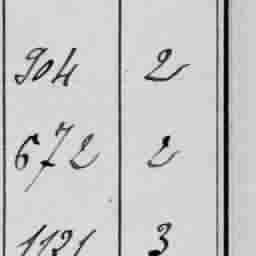 904 2
672 2
1121 3